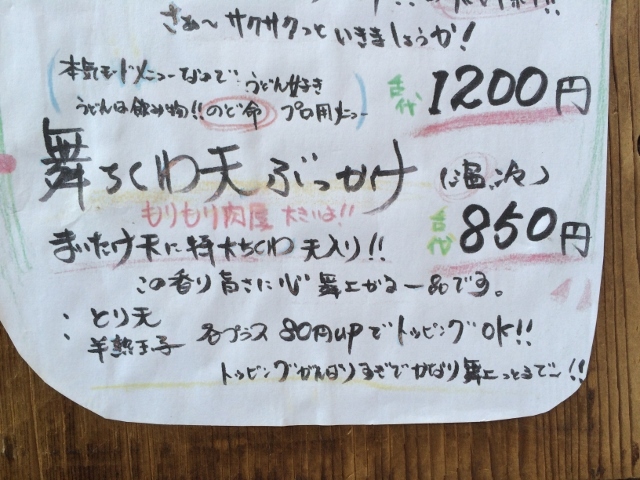 さぁ〜サクサクっといきましょうか!
本気モードメニューなので、うどん好き
うどんは飲み物!!のど命 プロ用メニュー
舌代 1200円
舞ちくわ天ぶっかけ (温冷)
もりもり肉屋 大きいよ!!
舌代 850円
まいたけ天に特大ちくわ天入り!!
この香り旨さに心舞上がる一品です。
: とり天
: 半熟玉子 各プラス80円upでトッピングOK!!
トッピングがんばりすぎでかなり舞上っとるで〜!!